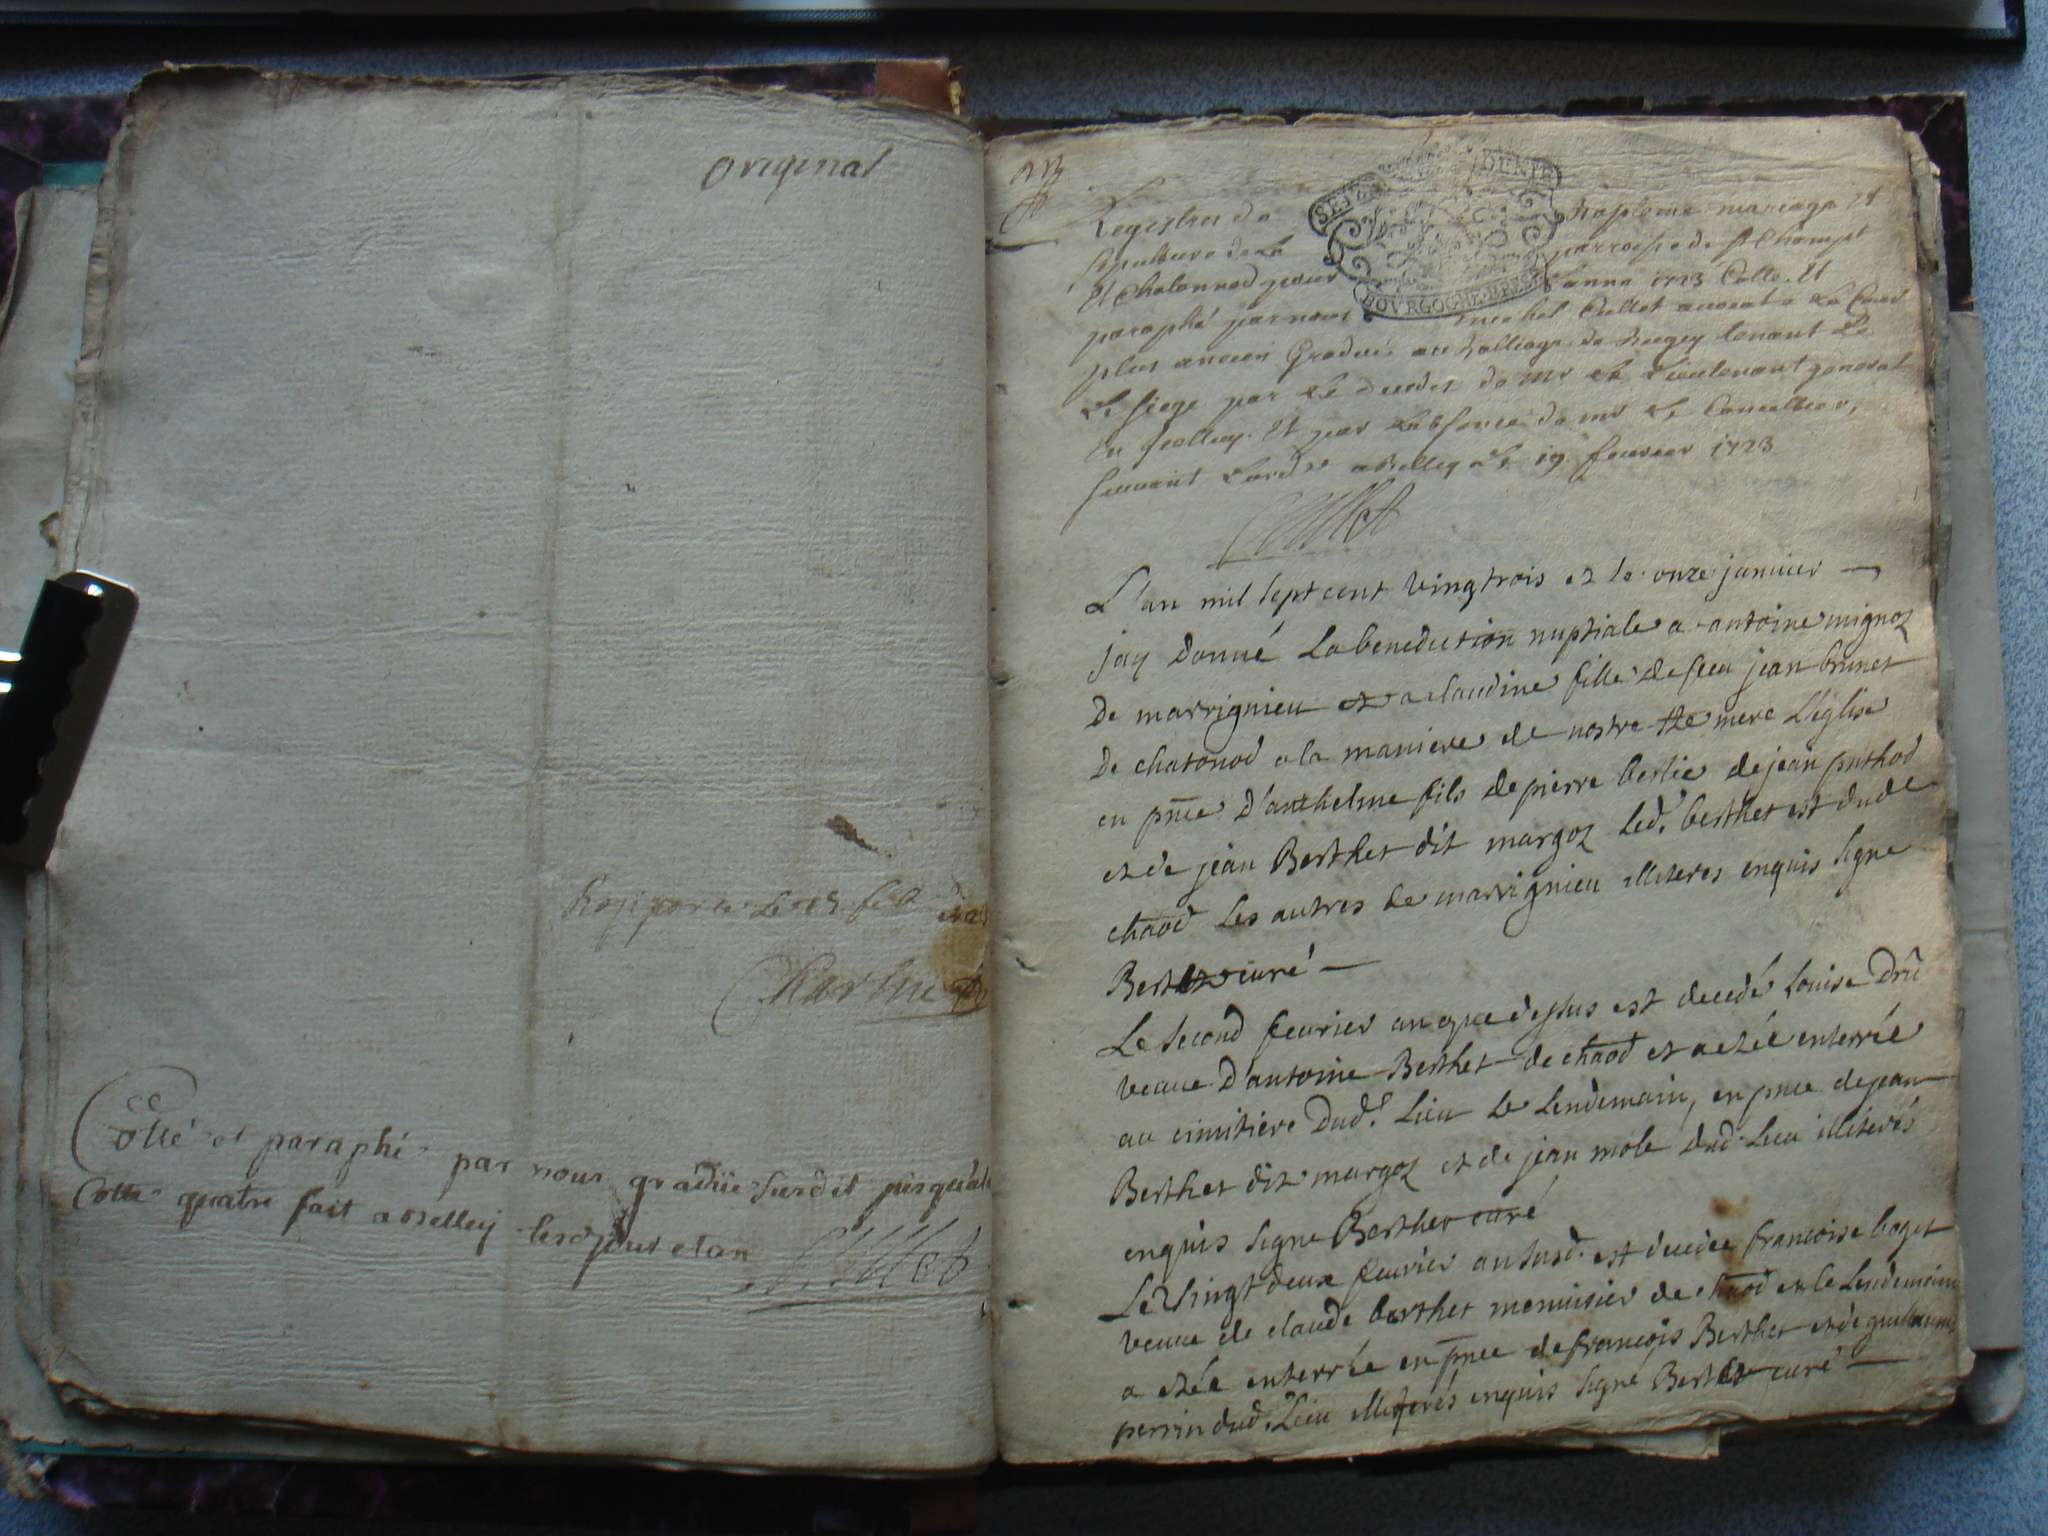 original
Cotté et paraphé par nous gradüé susdit jusqu'a la
Cotte quatre fait a Belley lesd jour et an
Cullet
Registres de Bapteme mariage et
sepulture de la parroisse de St Champt
et Chatonnod pour l'anné 1723 Cotté et
paraphé par nous michel Cullet avocat a la Cour
plus ancien Gradué au balliage de bugey tenant le
le siege par le decedes de mr le Lieutenant general
en Et par Labsence de mr le Conseillier,
suivant L'ordre a Belley le 19 feuvrier 1723
Cullet
SEIZE DENIE
BOVRGOGNE BRESSE
L'an mil sept cent vingtrois et le onze januier
jay donné La benediction nuptiale a antoine mignoz
de marrignieu et a claudine fille de feu jean brunet
de chatonod a la maniere de nostre ste mere L'église
en pnce d'anthelme fils de pierre berlie de jean puthod
et de jean Berthet dit margoz led. berthet est dud
chaod les autres de marrignieu illiteres enquis signe
Berthet curé
Le second feurier an que dessus est decedé Louise Dru
veuue d'antoine Berthet de chaod et a etée enterrée
au cimitiere dud. Lieu le lendemain, en pnce de jean
Berthet dit margoz et de jean mole dud. Lieu illiterés
enquis signe Berthet curé
Le Vingt deux feurier an susd. est decedée francoise boget
veuue de claude berthet menuisier de chaod et le Lendemain
a etée enterrée en pnce de francois Berthet et de guillaume
perrin dud. Lieu illiterés enquis signé Berthet curé